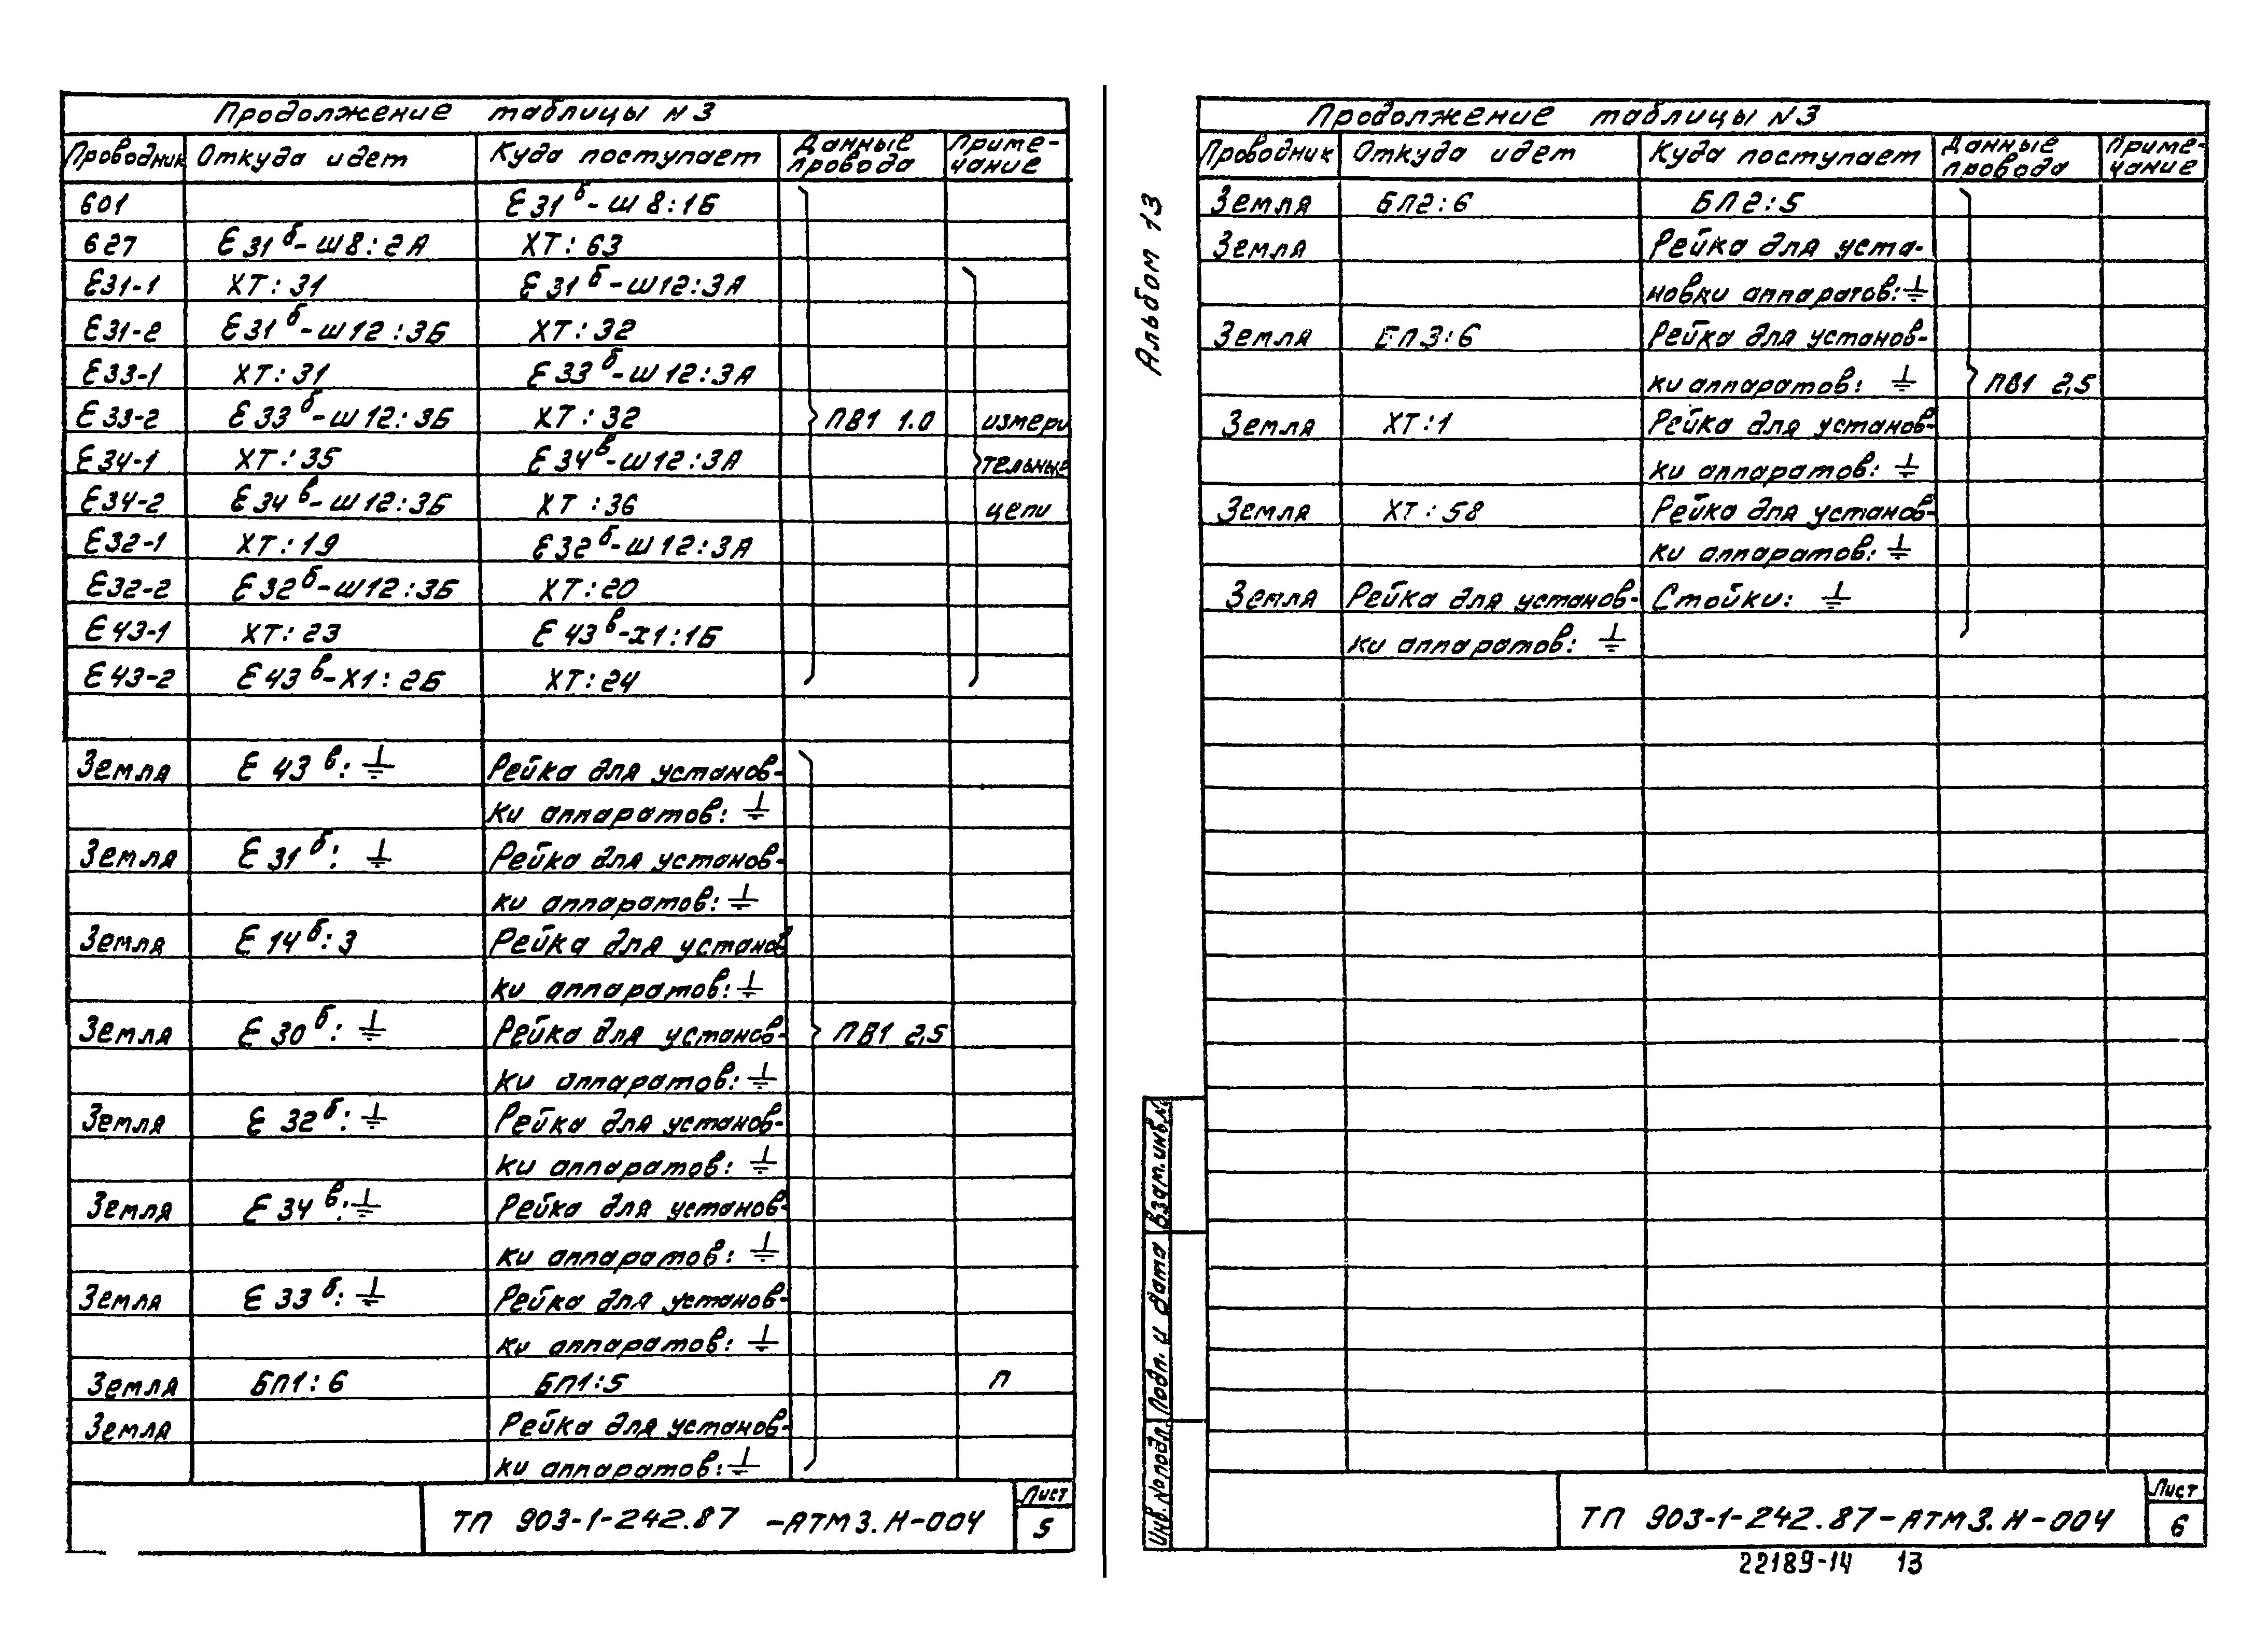 Продолжение таблицы N3
Проводник Откуда идет Куда поступает Данные провода Примечание
601 Е31б-Ш8:1Б
627 Е31б-Ш8:2А ХТ:63
Е31-1 ХТ:31 Е31б-Ш12:3А
Е31-2 Е31б-Ш12:3Б ХТ:32
Е33-1 ХТ:31 Е33б-Ш12:3А
Е33-2 Е33б-Ш12:3Б ХТ:32 ПВ1 1.0 измери
Е34-1 ХТ:35 Е34в-Ш12:3А тельные
Е34-2 Е34в-Ш12:3Б ХТ:36 цепи
Е32-1 ХТ:19 Е32б-Ш12:3А
Е32-2 Е32б-Ш12:3Б ХТ:20
Е43-1 ХТ:23 Е43в-Х1:1Б
Е43-2 Е43в-Х1:2Б ХТ:24
Земля Е43в:⏚ Рейка для установ-
ки аппаратов:⏚
Земля Е31б:⏚ Рейка для установ-
ки аппаратов:⏚
Земля Е14б:3 Рейка для установ
ки аппаратов:⏚
Земля Е30б:⏚ Рейка для установ- ПВ1 2,5
ки аппаратов:⏚
Земля Е32б:⏚ Рейка для установ-
ки аппаратов:⏚
Земля Е34в:⏚ Рейка для установ-
ки аппаратов:⏚
Земля Е33б:⏚ Рейка для установ-
ки аппаратов:⏚
Земля БП1:6 БП1:5 П
Земля Рейка для установ-
ки аппаратов:⏚
ТП 903-1-242.87 -АТМ3.Н-004
Лист
5
Альбом 13
Продолжение таблицы N3
Проводник Откуда идет Куда поступает Данные провода Примечание
Земля БП2:6 БП2:5
Земля Рейка для уста-
новки аппаратов:⏚
Земля БП3:6 Рейка для установ-
ки аппаратов:⏚ ПВ1 2,5
Земля ХТ:1 Рейка для установ-
ки аппаратов:⏚
Земля ХТ:58 Рейка для установ-
ки аппаратов:⏚
Земля Рейка для установ- Стойки:⏚
ки аппаратов:⏚
Взам.инв.N
Подп. и дата
Инв.Nоподл.
ТП 903-1-242.87-АТМ3.Н-004
Лист
6
22189-14 13